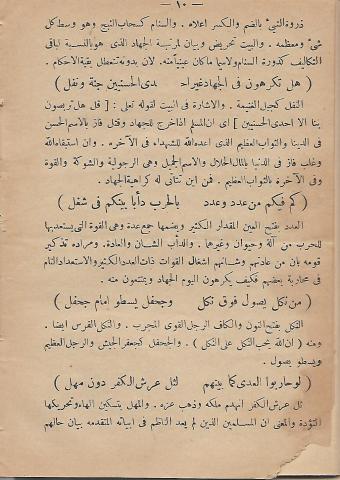 — ١٠ —
ذروة الشئ بالضم والكسر اعلاه . والسنام كسحاب النبج وهو وسط كل
شئ ومعظمه . والبيت تحريض وبيان لمرتبة الجهاد الذى هو بالنسبة لباقى
التكاليف كذورة السنام ولاسيما ماكان عينياً منه . لان بدونه تتعطل بقية الاحكام .
( هل تكرهون فى الجهاد غير احـ ـدى الحسنيين جنة ونفل )
النفل كجبل الغنيمة . والاشارة فى البيت لقوله تعلى : [ قل هل تربصون
بنا الا احدى الحسنيين ] اى ان المسلم اذا خرج للجهاد وقتل فاز بالاسم الحسن
فى الدنيا والثواب العظيم الذى اعده الله للشهداء فى الآخره . وان استبقاه الله
وغلب فاز فى الدنيا بالمال الحلال والاسم الجميل وهى الرجولية والشوكة والقوة
وفى الآخرة بالثواب العظيم . فمن اين تتأتى له كراهية الجهاد .
( كم فيكم من عدد وعدد بالحرب دأبا بينكم فى شغل )
العدد بفتح العين المقدار الكثير وبضمها جمع عدة وهى القوة التى يستعد بها
للحرب من آلة وحيوان وغيرها . والدأب الشان والعادة . ومراده تذكير
قومه بان من عادتهم وشانهم اشغال القوات ذات العدد الكثير والاستعداد التام
فى محاربة بعضهم فكيف يكرهون اليوم الجهاد ويمتنعون منه .
( من نكل يصول فوق نكل وجحفل يسطو امام جحفل )
النكل بفتح النون والكاف الرجل القوى المجرب . والنكل الفرس ايضا .
ومنه ( ان الله يحب النكل على النكل ) . والجحفل كجعفر الجيش والرجل العظيم
ويسطو يصول .
( لو حاربوا العدى كما بينهم لثل عرش الكفر دون مهل )
ثل عرش الكفر انهدم ملكه وذهب عزه . والمهل بتسكين الهاء وتحريكها
التؤدة والمعنى ان المسلمين الذين لم يعد الناظم فى ابياته المتقدمه بيان حالهم